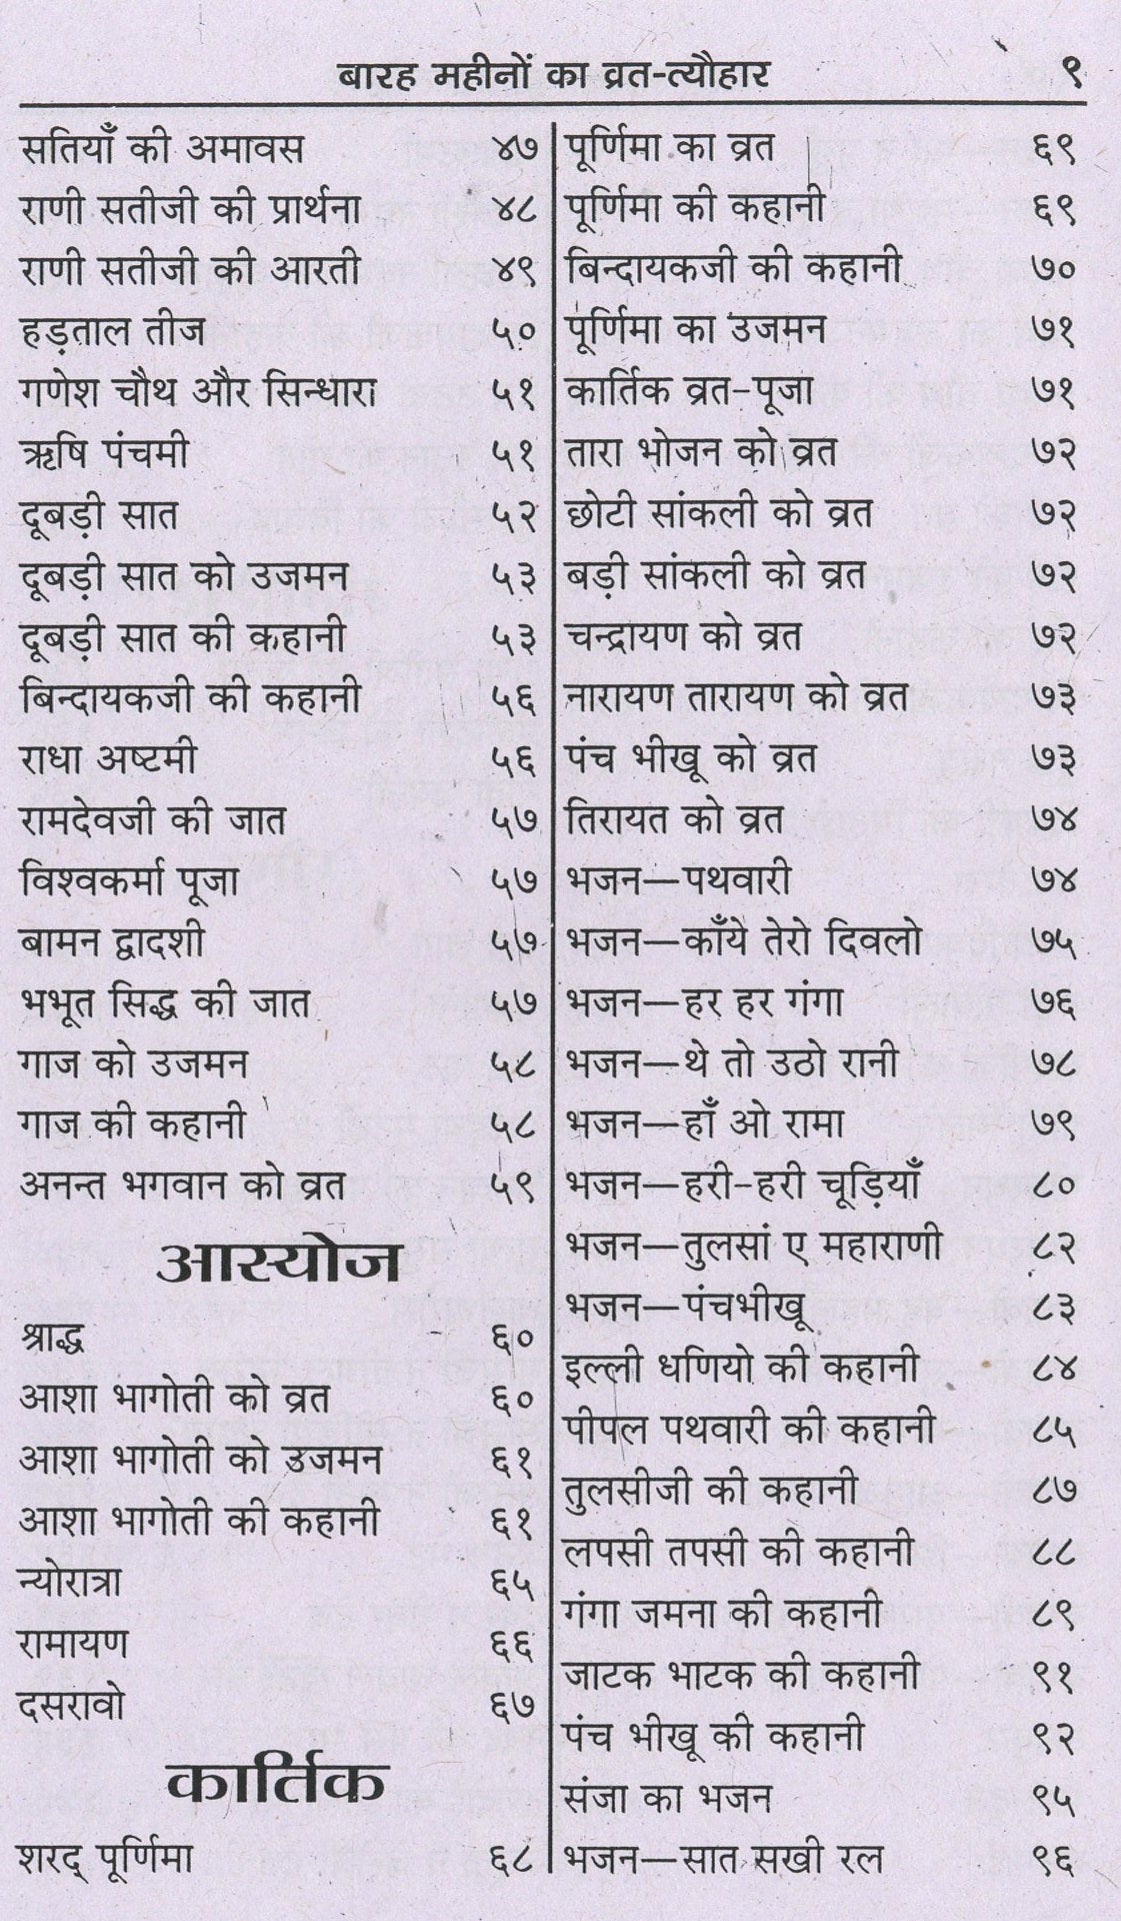 बारह महीनों का व्रत-त्यौहार ९
सतियाँ की अमावस ४७
राणी सतीजी की प्रार्थना ४८
राणी सतीजी की आरती ४९
हड़ताल तीज ५०
गणेश चौथ और सिन्धारा ५१
ऋषि पंचमी ५१
दूबड़ी सात ५२
दूबड़ी सात को उजमन ५३
दूबड़ी सात की कहानी ५३
बिन्दायकजी की कहानी ५६
राधा अष्टमी ५६
रामदेवजी की जात ५७
विश्वकर्मा पूजा ५७
बामन द्वादशी ५७
भभूत सिद्ध की जात ५७
गाज को उजमन ५८
गाज की कहानी ५८
अनन्त भगवान को व्रत ५९
आस्योज
श्राद्ध ६०
आशा भागोती को व्रत ६०
आशा भागोती को उजमन ६१
आशा भागोती की कहानी ६१
न्योरात्रा ६५
रामायण ६६
दसरावो ६७
कार्तिक
शरद् पूर्णिमा ६८
पूर्णिमा का व्रत ६९
पूर्णिमा की कहानी ६९
बिन्दायकजी की कहानी ७०
पूर्णिमा का उजमन ७१
कार्तिक व्रत-पूजा ७१
तारा भोजन को व्रत ७२
छोटी सांकली को व्रत ७२
बड़ी सांकली को व्रत ७२
चन्द्रायण को व्रत ७२
नारायण तारायण को व्रत ७३
पंच भीखू को व्रत ७३
तिरायत को व्रत ७४
भजन—पथवारी ७४
भजन—काँये तेरो दिवलो ७५
भजन—हर हर गंगा ७६
भजन—थे तो उठो रानी ७८
भजन—हाँ ओ रामा ७९
भजन—हरी-हरी चूड़ियाँ ८०
भजन—तुलसां ए महाराणी ८२
भजन—पंचभीखू ८३
इल्ली धणियो की कहानी ८४
पीपल पथवारी की कहानी ८५
तुलसीजी की कहानी ८७
लपसी तपसी की कहानी ८८
गंगा जमना की कहानी ८९
जाटक भाटक की कहानी ९१
पंच भीखू की कहानी ९२
संजा का भजन ९५
भजन—सात सखी रल ९६